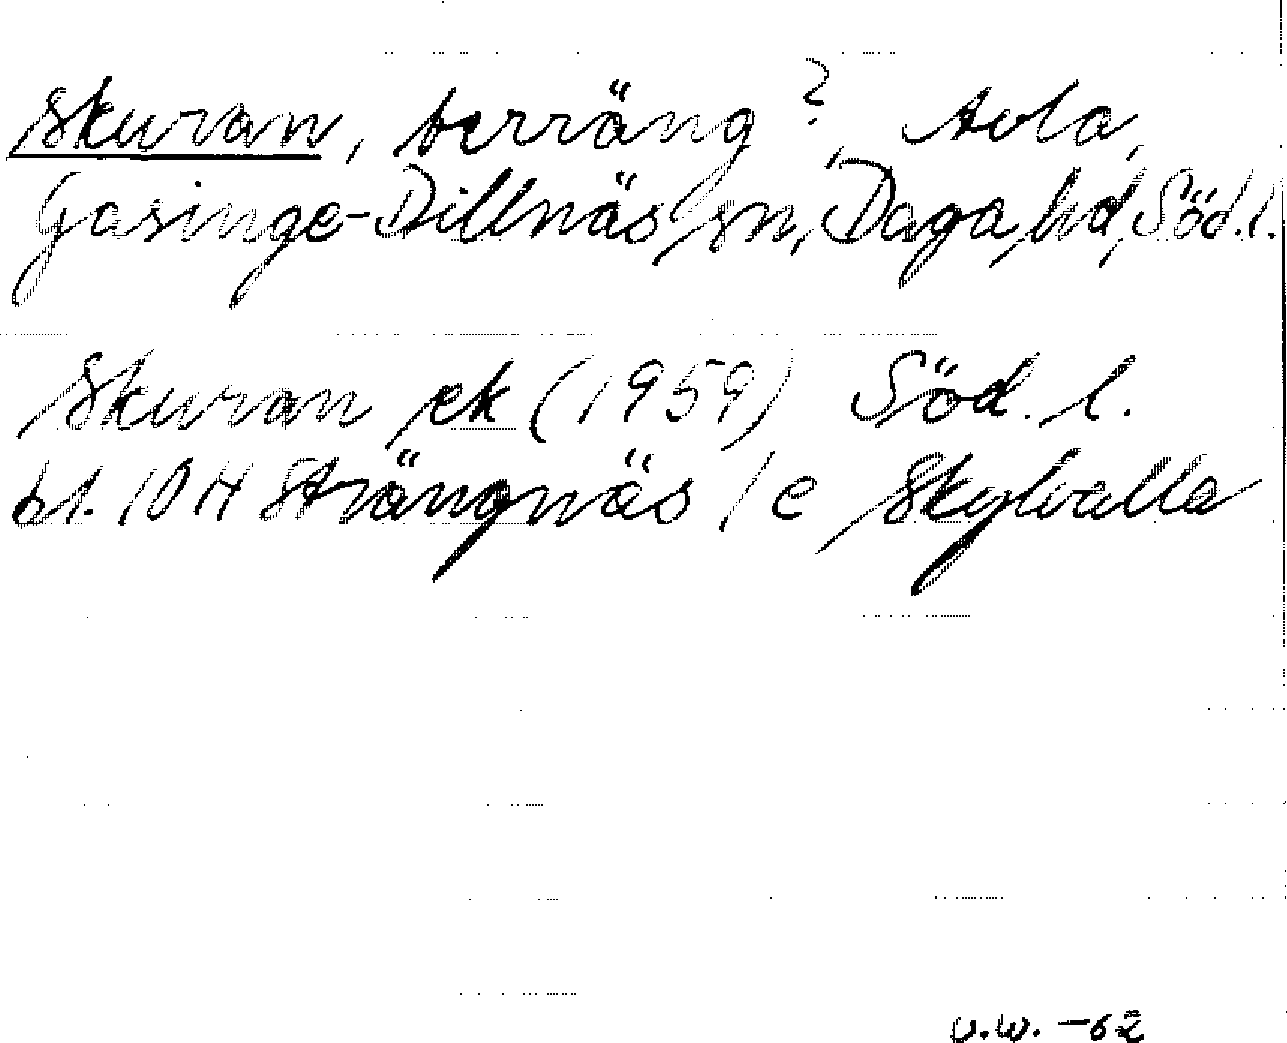 Skuran, terräng?, Avla,
Gåsinge-Dillnäs sn, Daga hd, Söd.l.
Skuran ek (1959) Söd. l.
bl. 10 H Strängnäs / c Skylvalla
U.W. -62